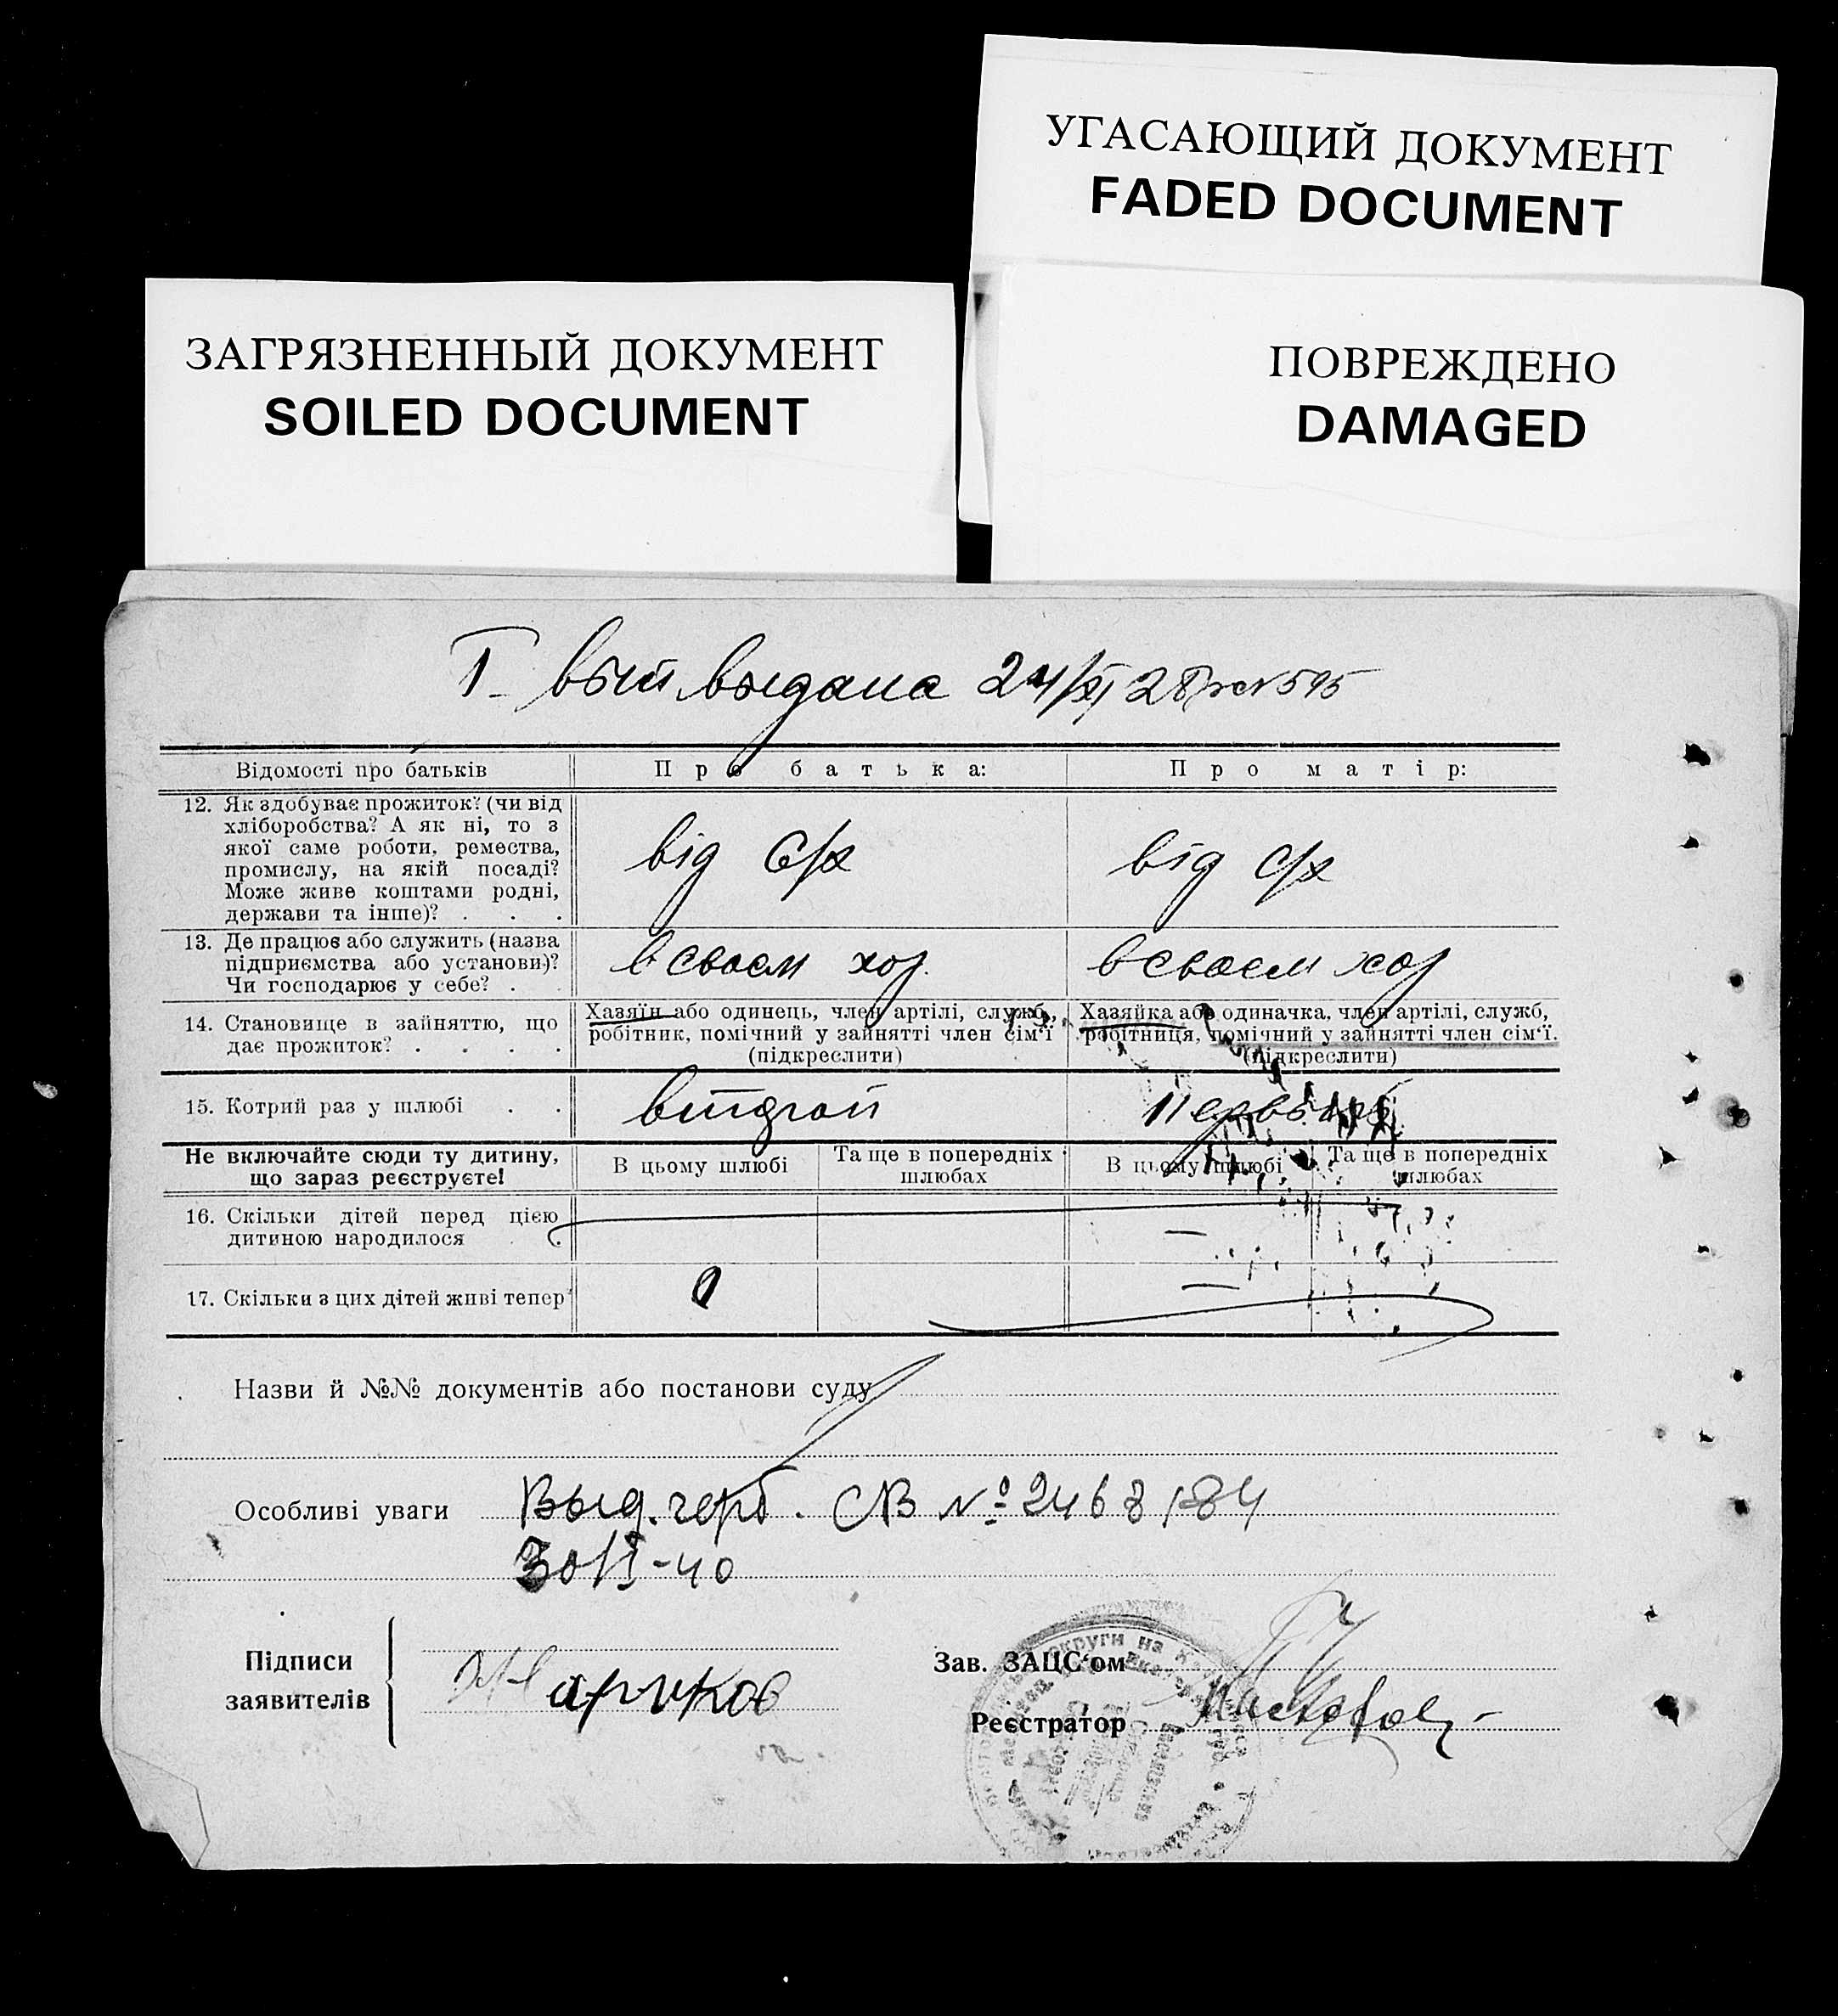 УГАСАЮЩИЙ ДОКУМЕНТ
FADED DOCUMENT
ЗАГРЯЗНЕННЫЙ ДОКУМЕНТ
SOILED DOCUMENT
ПОВРЕЖДЕНО
DAMAGED
выдана 24/XI 28 595
Відомості про батьків
Про батька:
Про матір:
12. Як здобуває прожиток? (чи від
хліборобства? А як ні, то з
якої саме роботи, ремества,
промислу, на якій посаді?
Може живе коштами родні,
держави та інше)? . . .
від с/х
від с/х
13. Де працює або служить (назва
підприємства або установи)?
Чи господарює у себе? .
в своем хоз.
в своем хоз
14. Становище в зайняттю, що
дає прожиток? . . . .
Хазяїн або одинець, член артілі, служб,
робітник, помічний у зайнятті член сім‘ї
(підкреслити)
Хазяйка або одиначка, член артілі, служб,
робітниця, помічний у зайнятті член сім‘ї.
(підкреслити)
15. Котрий раз у шлюбі . .
Не включайте сюди ту дитину,
що зараз реєструєте!
В цьому шлюбі
Та ще в попередніх
шлюбах
В цьому шлюбі
Та ще в попередніх
шлюбах
16. Скільки дітей перед цією
дитиною народилося
—
17. Скільки з цих дітей живі тепер
—
Назви й №№ документів або постанови суду
Особливі уваги
Выд. герб. № 2468
30/I-40
Підписи
заявителів
Зав. ЗАЦС‘ом
Реєстратор
округи на К